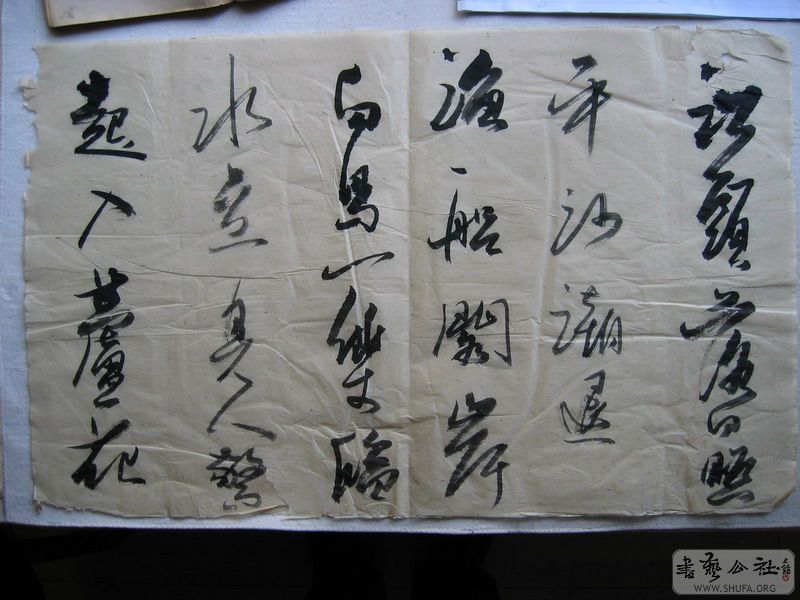 江頭落日照
平沙潮退
漁船閣岸
白鳥一雙臨
水立見人驚
起入蘆花
書藝公社
WWW.SHUFA.ORG